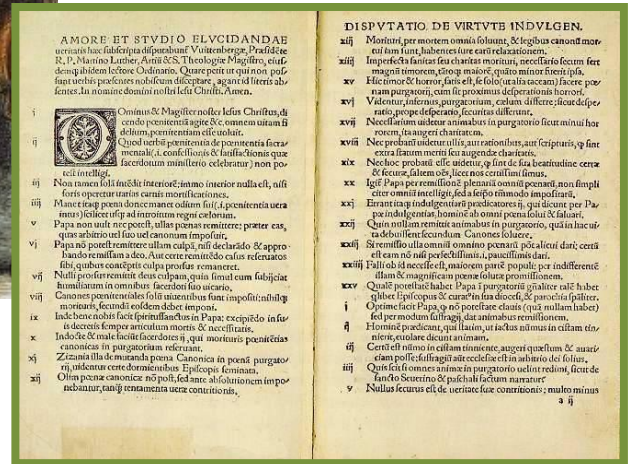 AMORE ET STVDIO ELVCIDANDAE
ueritatis hæc subscripta disputabunť Vuittenbergæ, Præsidēte
R. P. Martino Luther, Artiū & S. Theologiæ Magistro, eius/
demqȝ ibidem lectore Ordinario. Quare petit ut qui non pos/
sunt uerbis præsentes nobiscum disceptare, agant id literis ab/
sentes. In nomine domini nostri Iesu Christi. Amen.
i Ominus & Magister noster Iesus Christus, di/
cendo pœnitentiā agite &c, omnem uitam fi
delium, pœnitentiam esse uoluit.
ij Quod uerbū pœnitentia de pœnitentia sacra/
mentali (.i. confessionis & satisfactionis quæ
sacerdotum ministerio celebratur) non po/
test intelligi.
iij Non tamen solā intēdit interiorē: immo interior nulla est, nisi
foris operetur uarias carnis mortificationes.
iiij Manet itaqȝ pœna donec manet odium sui (.i. pœnitentia uera
intus) scilicet usqȝ ad introitum regni cælorum.
v Papa non uult nec potest, ullas pœnas remittere; præter eas,
quas arbitrio uel suo uel canonum imposuit.
vj Papa nō potest remittere ullam culpā, nisi declarādo & appro/
bando remissam a deo. Aut certe remittēdo casus reseruatos
sibi, quibus contēptis culpa prorsus remaneret.
vij Nulli prorsus remittit deus culpam, quin simul eum subijciat
humiliatum in omnibus sacerdoti suo uicario.
viij Canones pœnitentiales solū uiuentibus sunt impositi; nihilqȝ
morituris, secundū eosdem debet imponi.
ix Inde bene nobis facit spiritussanctus in Papa; excipiēdo in su/
is decretis semper articulum mortis & necessitatis.
x Indocte & male faciūt sacerdotes ij, qui morituris pœnitētias
canonicas in purgatorium reseruant.
xj Zizania illa de mutanda pœna Canonica in pœnā purgato/
rij, uidentur certe dormientibus Episcopis seminata.
xij Olim pœnæ canonicæ nō post, sed ante absolutionem impo/
nebantur, tanqȝ tentamenta ueræ contritionis.
DISPVTATIO DE VIRTVTE INDVLGEN.
xiij Morituri, per mortem omnia soluunt, & legibus canonū mor/
tui iam sunt, habentes iure earū relaxationem.
xiiij Imperfecta sanitas seu charitas morituri, necessario secum fert
magnū timorem, tātoqȝ maiorē, quāto minor fuerit ipsa.
xv Hic timor & horror, satis est, se solo (ut alia taceam) facere pœ/
nam purgatorij, cum sit proximus desperationis horrori.
xvj Videntur, infernus, purgatorium, cælum differre; sicut despe/
ratio, prope desperatio, securitas differunt.
xvij Necessarium uidetur animabus in purgatorio sicut minui hor
rorem, ita augeri charitatem.
xviij Nec probatū uidetur ullis, aut rationibus, aut scripturis, qȝ sint
extra statum meriti seu augendæ charitatis.
xix Nec hoc probatū esse uidetur, qȝ sint de sua beatitudine certæ
& securæ, saltem oēs, licet nos certissimi simus.
xx Igiť Papa per remissionē plenariā omniū pœnarū, non simpli
citer omniū intelligit, sed a seipso tātūmodo impositarū.
xxj Errant itaqȝ indulgentiarū prædicatores ij, qui dicunt per Pa/
pæ indulgentias, hominē ab omni pœna solui & saluari.
xxij Quin nullam remittit animabus in purgatorio, quā in hac ui/
ta debuissent secundum Canones soluere.
xxiij Si remissio ulla omniū omnino pœnarū pōt alicui dari; certū
est eam nō nisi perfectissimis .i. paucissimis dari.
xxiiij Falli ob id necesse est, maiorem partē populi; per indifferentē
illam & magnificam pœnæ solutæ promissionem.
xxv Qualē potestatē habet Papa ī purgatoriū gñaliter talē habet
quilibet Episcopus & curatᵘˢ in sua diocesi, & parochia spāliter.
j Optime facit Papa, qȝ nō potestate clauis (quā nullam habet)
sed per modum suffragij, dat animabus remissionem.
ij Hominē prædicant, qui statim, ut iactus nūmus in cistam tin/
nierit, euolare dicunt animam.
iij Certū est nūmo in cistam tinniente, augeri quæstum & auari/
ciam posse; suffragiū aūt ecclesiæ est in arbitrio dei solius.
iiij Quis scit si omnes animæ in purgatorio uelint redimi, sicut de
sancto Seuerino & paschali factum narratur.
v Nullus securus est de ueritate suæ contritionis; multo minus
a ij